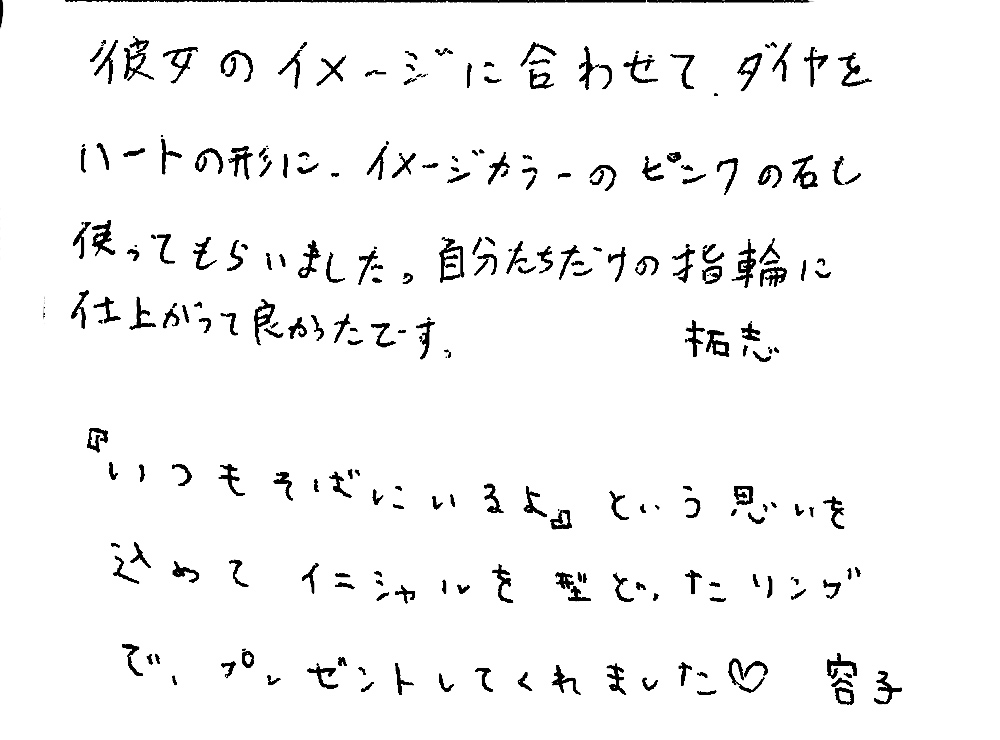 彼女のイメージに合わせて、ダイヤを
ハートの形に、イメージカラーのピンクの石も
使ってもらいました。自分たちだけの指輪に
仕上がって良かったです。
拓志
『いつもそばにいるよ』という思いを
込めてイニシャルを型どったリング
で、プレゼントしてくれました♡ 容子